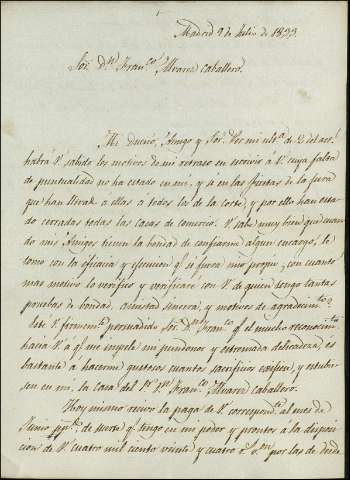 Madrid 9 de Julio de 1833.
Sor. Dn. Franco. Alvarez Caballero.
Mi dueño, Amigo y Sor. Por mi ulta. de 2 del actl.
habrá V. sabido los motivos de mi retraso en escrivir á V. cuya falta
de puntualidad no ha estado en mi, y si en las fiestas de la Jura
que han llevado a ellas a todos los de la Corte, y por ello han esta-
do cerradas todas las casas de comercio. V. sabe muy bien que cuan-
do mis Amigos tienen la bondad de confiarme algun encargo, lo
tomo con la eficacia y ejecucion qe. si fuera mio propio; con cuanto
mas motivo lo verifico y verificaré con V. de quien tengo tantas
pruebas de bondad, amistad sincera, y motivos de agradecimto.
Esté V. firmemte. persuadido Sor. Dn. Franco. qe. el mucho reconocimto.
hacia V. a qe. me impele mi pundonor y estremada delicadeza, es
bastante a hacerme gustosos cuantos sacrificios exijiesen, y estubie-
sen en mi, la Casa del Sr. Dn. Franco. Alvarez Caballero.
Hoy mismo recivo la paga de V. correspondte. al mes de
Junio ppdo. de suerte qe. tengo en mi poder y prontos á la disposi-
cion de V. cuatro mil ciento veinte y cuatro rs. von. por las de